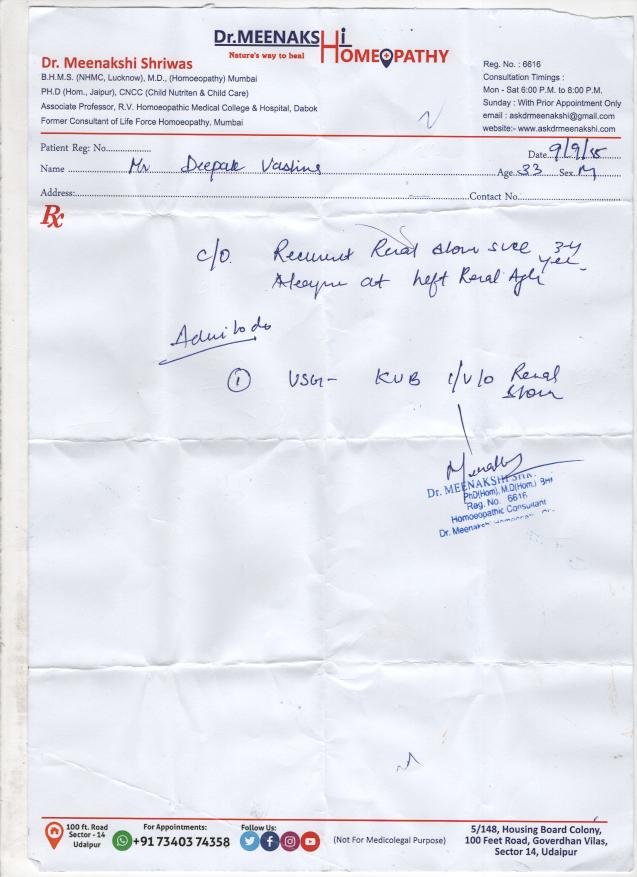 Dr.MEENAKSHi HOMEOPATHY
Nature's way to heal
Dr. Meenakshi Shriwas
B.H.M.S. (NHMC, Lucknow), M.D., (Homoeopathy) Mumbai
PH.D (Hom., Jaipur), CNCC (Child Nutriten & Child Care)
Associate Professor, R.V. Homoeopathic Medical College & Hospital, Dabok
Former Consultant of Life Force Homoeopathy, Mumbai
Reg. No. : 6616
Consultation Timings :
Mon - Sat 6:00 P.M. to 8:00 P.M.
Sunday : With Prior Appointment Only
email : askdrmeenakshi@gmail.com
website:- www.askdrmeenakshi.com
Patient Reg: No.
Date 9/9/
Name Mr Deepak
Age 33 Sex M
Address:
Contact No.
Rx
c/o. Recurrent Renal
at Left Renal
① USG- KUB Renal
Dr. MEENAKSHI
PhD(Hom), M.D(Hom.)
Reg. No. 6616
Homoeopathic Consultant
Dr. Meenakshi
100 ft. Road
Sector - 14
Udaipur
For Appointments:
+91 73403 74358
Follow Us:
(Not For Medicolegal Purpose)
5/148, Housing Board Colony,
100 Feet Road, Goverdhan Vilas,
Sector 14, Udaipur